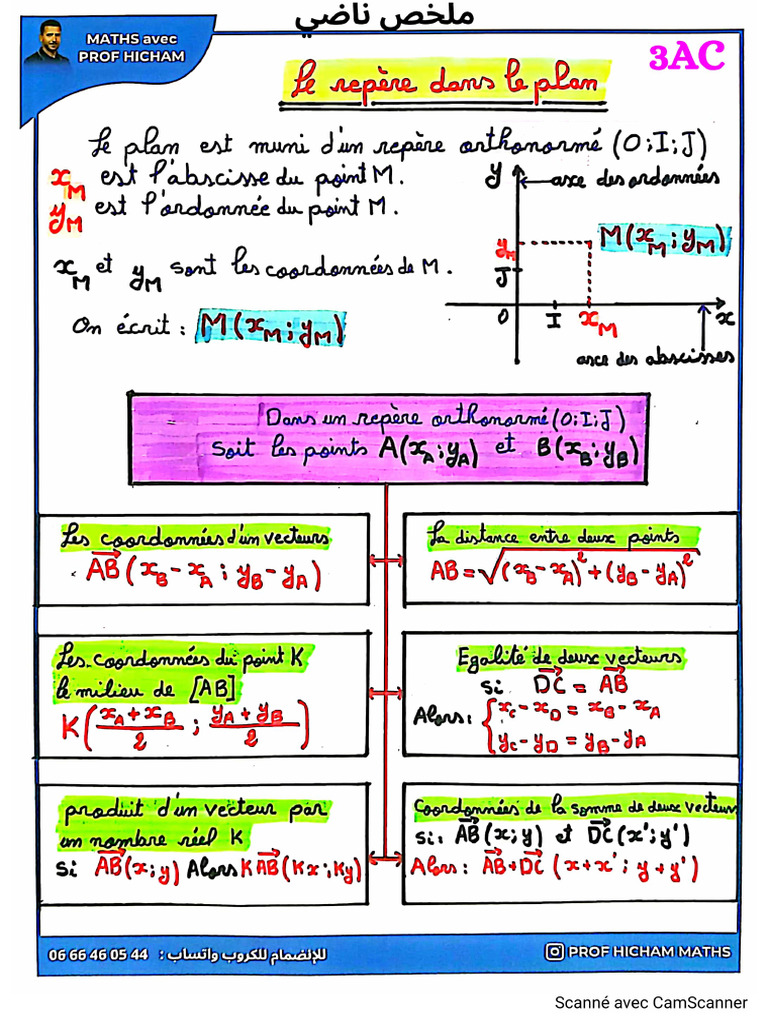 ملخص ناضي
MATHS avec
PROF HICHAM
3AC
Le repère dans le plan
Le plan est muni d'un repère orthonormé (O;I;J)
x_M est l'abscisse du point M.
y_M est l'ordonnée du point M.
x_M et y_M sont les coordonnées de M.
On écrit : M(x_M ; y_M)
y
axe des ordonnées
y_M
M(x_M ; y_M)
J
O I x_M x
axe des abscisses
Dans un repère orthonormé (O;I;J)
Soit les points A(x_A ; y_A) et B(x_B ; y_B)
Les coordonnées d'un vecteurs
AB⃗ (x_B - x_A ; y_B - y_A)
La distance entre deux points
AB = √((x_B - x_A)² + (y_B - y_A)²)
Les coordonnées du point K
le milieu de [AB]
K((x_A + x_B)/2 ; (y_A + y_B)/2)
Egalité de deux vecteurs
si DC⃗ = AB⃗
Alors : { x_C - x_D = x_B - x_A
y_C - y_D = y_B - y_A
produit d'un vecteur par
un nombre réel K
Si AB⃗ (x ; y) Alors K AB⃗ (Kx ; Ky)
Coordonnées de la somme de deux vecteurs
Si : AB⃗ (x ; y) et DC⃗ (x' ; y')
Alors : AB⃗ + DC⃗ (x + x' ; y + y')
06 66 46 05 44 للإنضمام للكروب واتساب :
PROF HICHAM MATHS
Scanné avec CamScanner